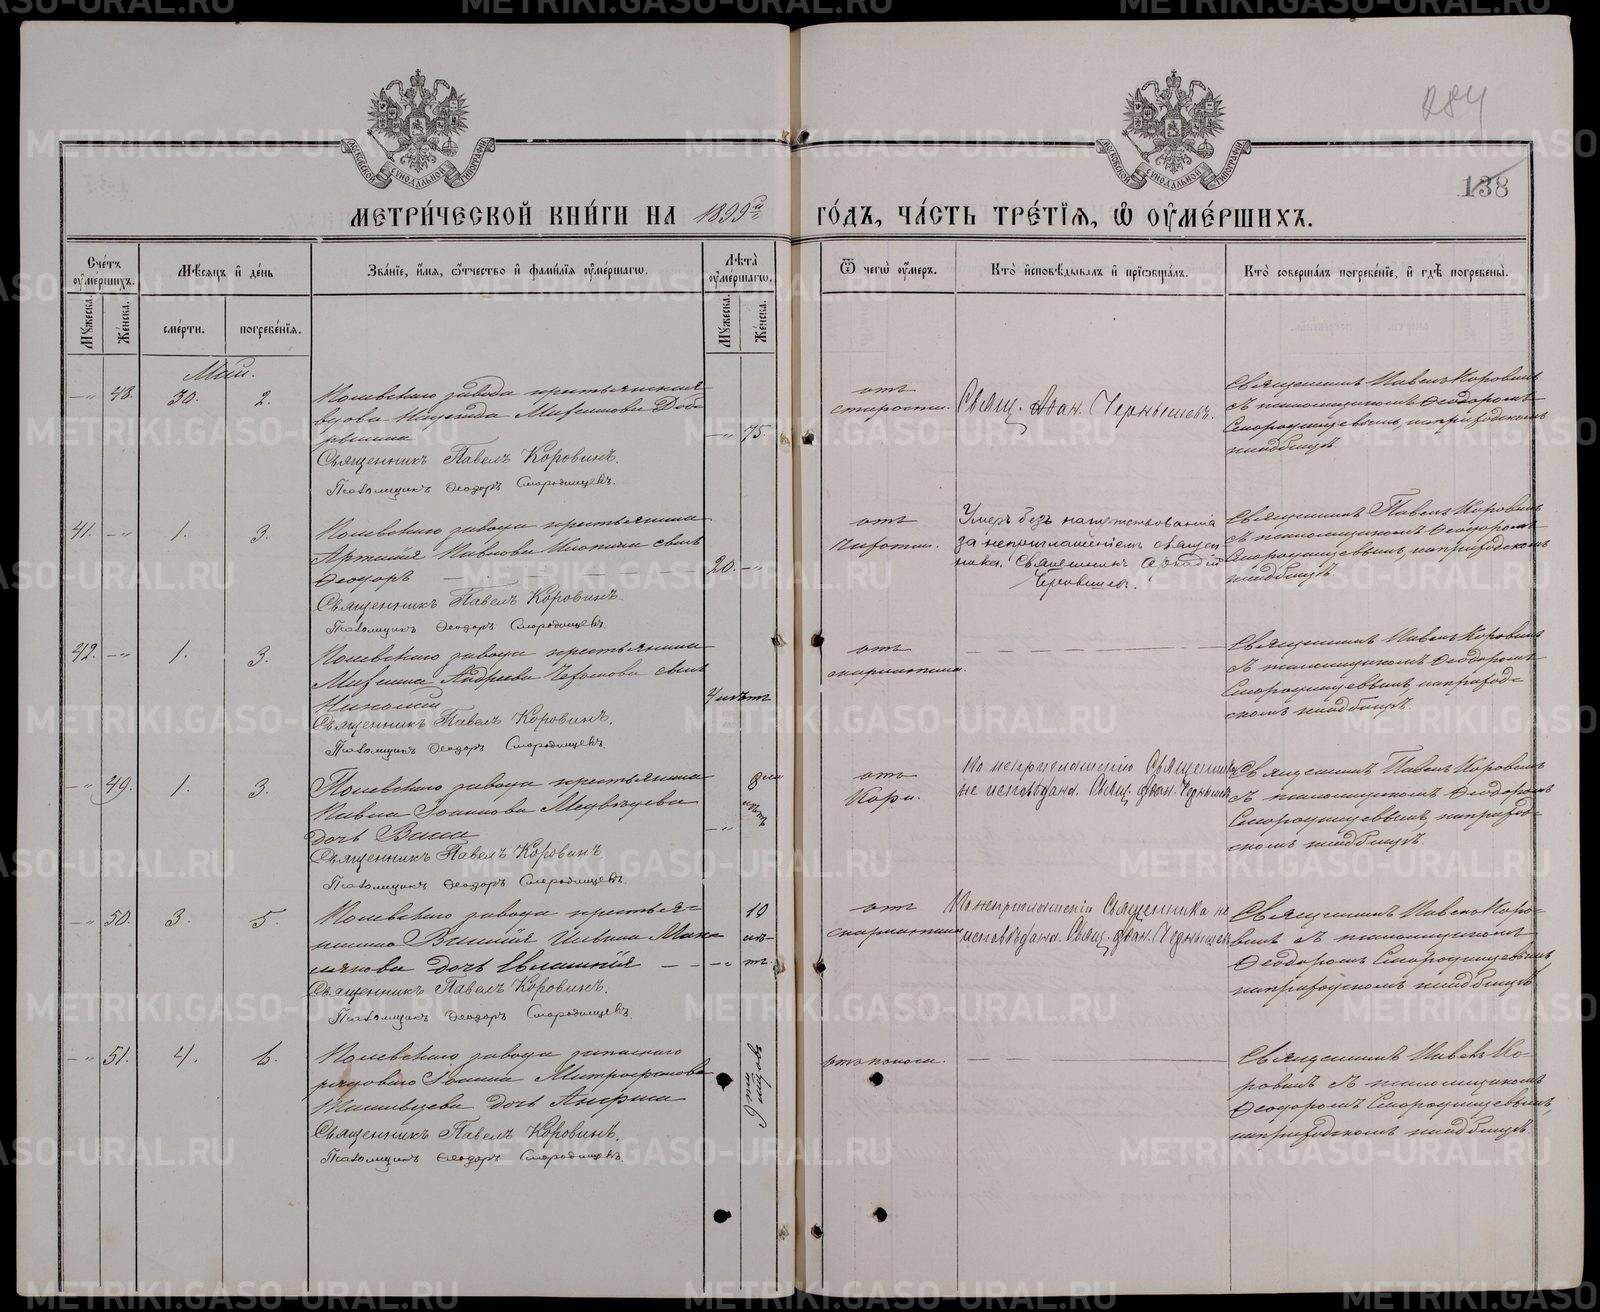 284
138
МЕТРИ́ЧЕСКОЙ КНИ́ГИ НА 1899й ГО́ДЪ, ЧА́СТЬ ТРЕ́ТІѦ, Ѿ ОУ҆МЕ́РШИХЪ.
Счéтъ оу҆мéршихъ.
Мѣ́сѧцъ и҆ де́нь
Зва́нїе, и҆́мѧ, ѻ҆́тчество и҆ фами́лїѧ оу҆ме́ршагѡ.
Лѣ́та оу҆ме́ршагѡ.
Ѿ чегѡ̀ оу҆́меръ.
Кто̀ и҆сповѣ́дывалъ и҆ прїѡбща́лъ.
Кто̀ соверша́лъ погребе́нїе, и҆ гдѣ̀ погребены̀.
Мꙋ́жеска.
Же́нска.
сме́рти.
погребе́нїѧ.
Мꙋ́жеска.
Же́нска.
Май.
-"- 48. 30. 2.
Полевскаго завода крестьянская
вдова Надежда Максимова Доб-
рынина
Священникъ Павелъ Коровинъ.
Псаломщикъ Ѳеодоръ Смородинцевъ.
-"- 75.
отъ
старости.
Свящ. Іоан. Чернышевъ.
Священникъ Павелъ Коровинъ
съ псаломщикомъ Ѳеодоромъ
Смородинцевымъ, на приходскомъ
кладбищѣ.
41. -"- 1. 3.
Полевскаго завода крестьянина
Артемія Павлова сынъ
Ѳеодоръ
Священникъ Павелъ Коровинъ.
Псаломщикъ Ѳеодоръ Смородинцевъ.
20. -"-
отъ
чахотки.
Умеръ безъ напутствованія
за неприглашеніемъ священ
ника. Священникъ
Священникъ Павелъ Коровинъ
съ псаломщикомъ Ѳеодоромъ
Смородинцевымъ, на приходскомъ
кладбищѣ.
42. -"- 1. 3.
Полевскаго завода крестьянина
Максима Андреева сынъ
Николай
Священникъ Павелъ Коровинъ.
Псаломщикъ Ѳеодоръ Смородинцевъ.
отъ
скарлатины.
Священникъ Павелъ Коровинъ
съ псаломщикомъ Ѳеодоромъ
Смородинцевымъ, на приход-
скомъ кладбищѣ.
-"- 49. 1. 3.
Полевскаго завода крестьянина
Павла Іоаннова Медвѣдева
дочь
Священникъ Павелъ Коровинъ
Псаломщикъ Ѳеодоръ Смородинцевъ.
8
лѣтъ
-"-
отъ
Кори.
По неприглашенію Священника
не исповѣдана. Свящ. Іоан. Чернышевъ
Священникъ Павелъ Коровинъ
съ псаломщикомъ Ѳеодоромъ
Смородинцевымъ, на приход-
скомъ кладбищѣ.
-"- 50. 3. 5.
Полевскаго завода крестья-
нина
дочь
Священникъ Павелъ Коровинъ.
Псаломщикъ Ѳеодоръ Смородинцевъ.
10
лѣ-
-"- тъ.
отъ
скарлатины
По неприглашенію Священника не
исповѣдана. Свящ. Іоан. Чернышевъ
Священникъ Павелъ Коро-
винъ съ псаломщикомъ
Ѳеодоромъ Смородинцевымъ,
на приходскомъ кладбищѣ
-"- 51. 4. 6.
Полевскаго завода запаснаго
рядоваго Іоанна Митрофанова
дочь Анфиса
Священникъ Павелъ Коровинъ.
Псаломщикъ Ѳеодоръ Смородинцевъ.
отъ поноса.
Священникъ Павелъ Ко-
ровинъ съ псаломщикомъ
Ѳеодоромъ Смородинцевымъ,
на приходскомъ кладбищѣ.